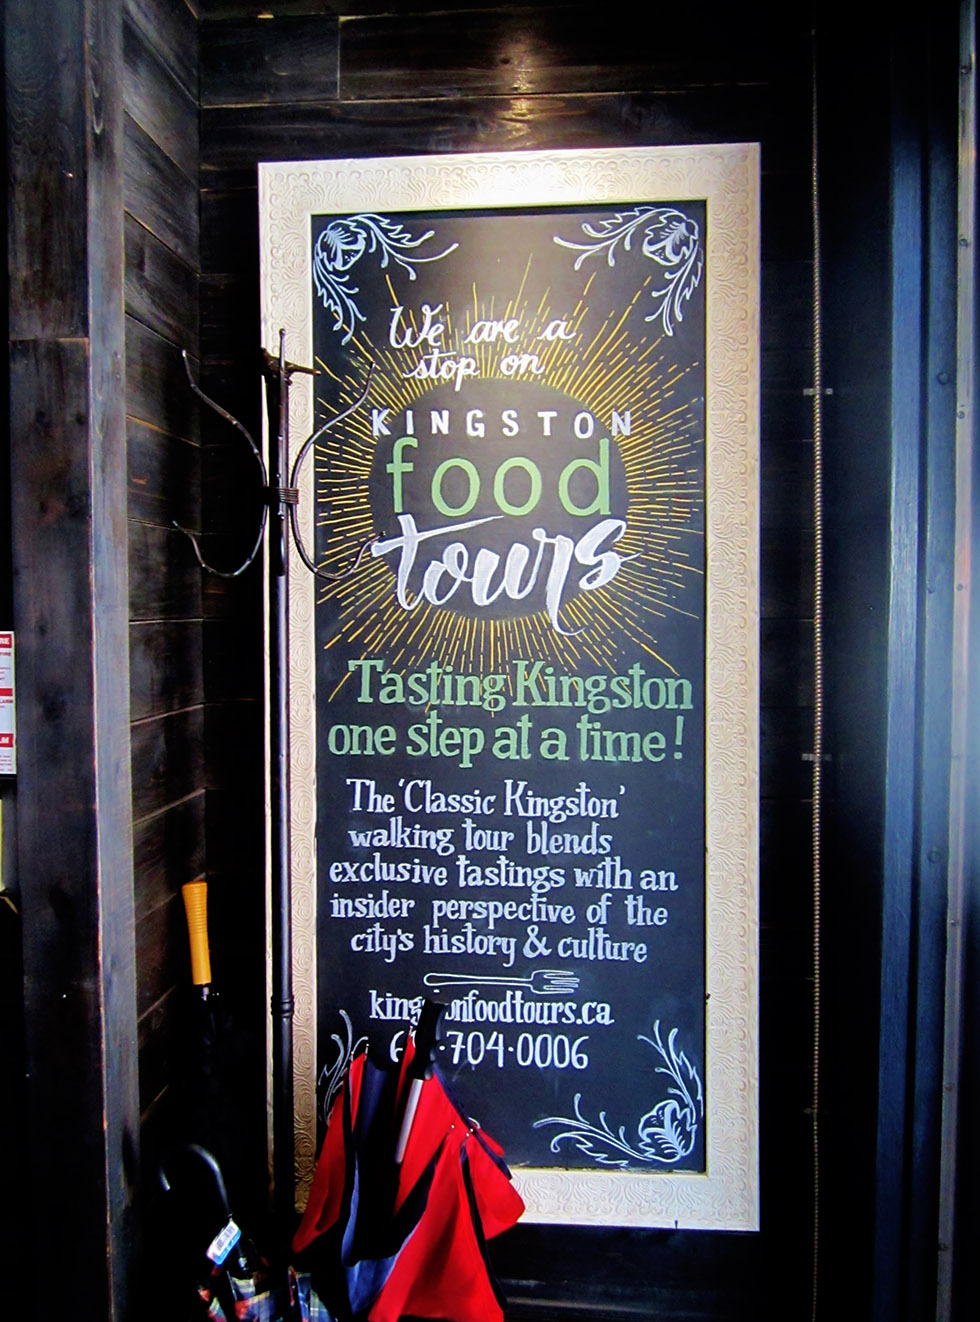 We are a
stop on
KINGSTON
food
tours
Tasting Kingston
one step at a time!
The 'Classic Kingston'
walking tour blends
exclusive tastings with an
insider perspective of the
city's history & culture
kingstonfoodtours.ca
704·0006